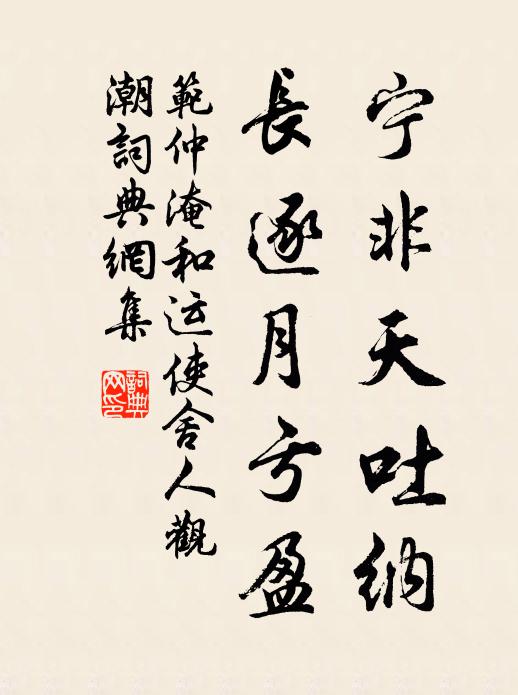 宁非天吐纳
長逐月亏盈
範仲淹和运使舍人觀
潮詞典網集
詞典
网印